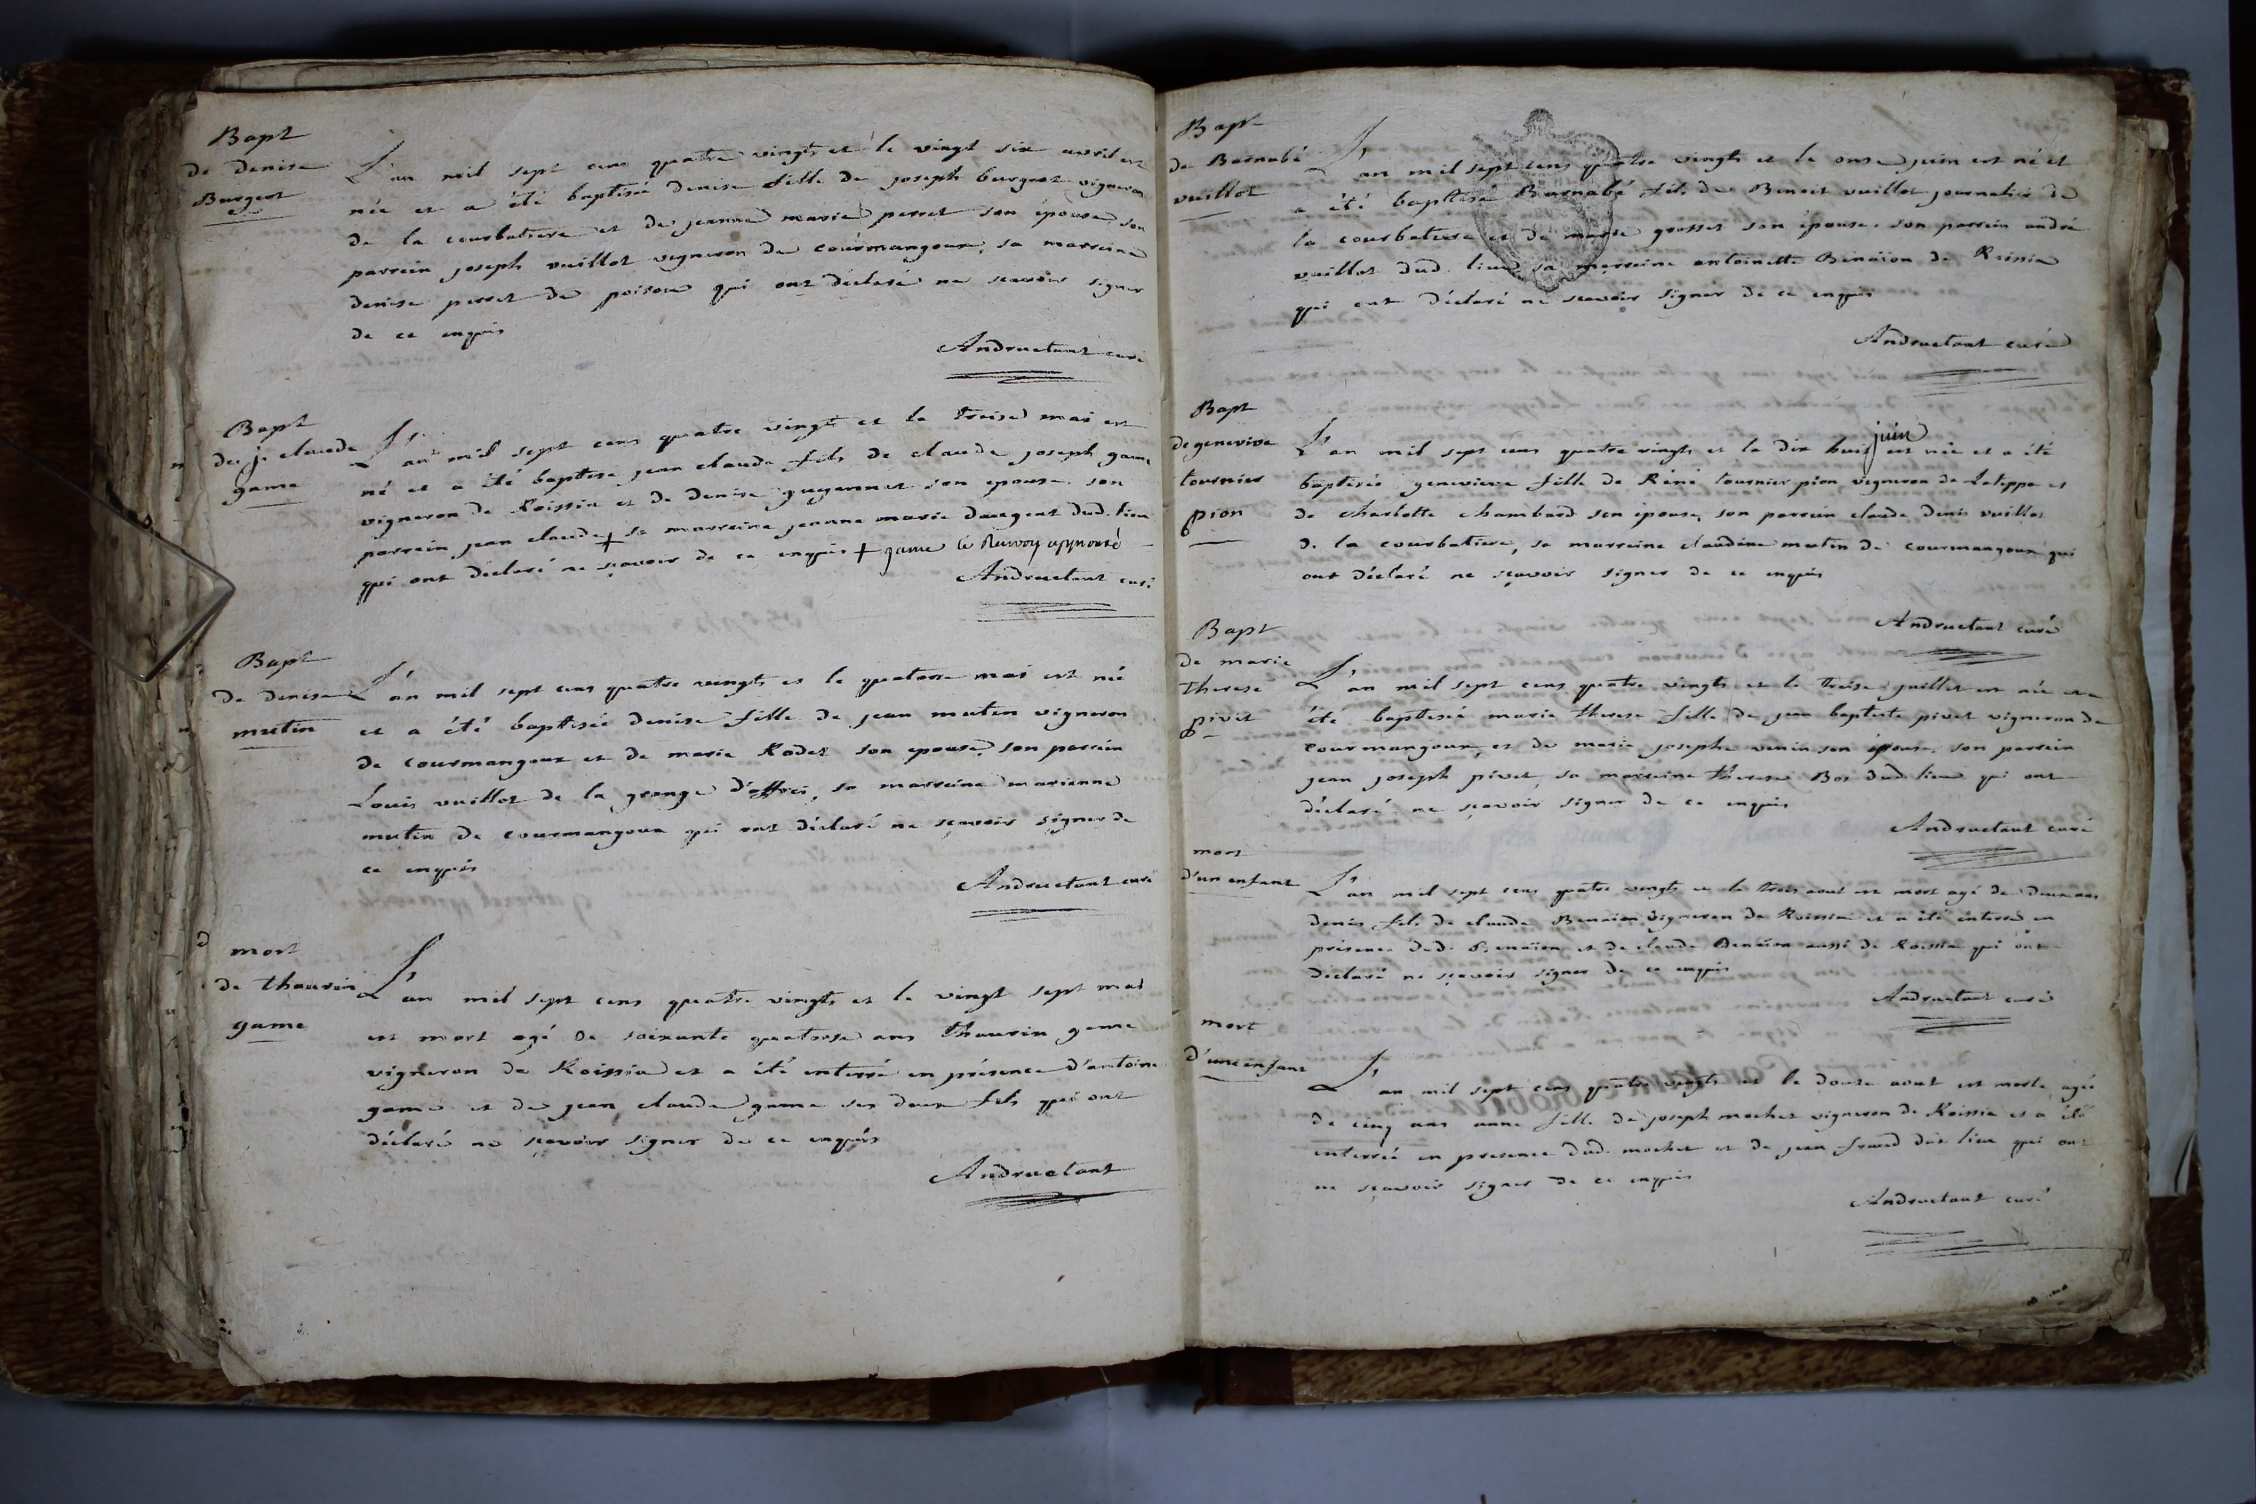 Bapt
de denise
Burgeot
L'an mil sept cens quatre vingts et le vingt six avril est
née et a été baptisée denise fille de joseph burgeot vigneron
de la courbatiere et de jeanne marie perret son épouse, son
parrein joseph vuillot vigneron de courmangoux, sa marreine
denise perret de poisoux qui ont déclaré ne scavoir signer
de ce enquis
Andruetant curé
Bapt
de j. claude
game
L'an mil sept cens quatre vingts et le treise mai est
né et a été baptisé jean claude fils de claude joseph game
vigneron de Roissia et de denise guyennet son epouse. son
parrein jean claude + sa marreine jeanne marie dud. lieu
qui ont déclaré ne sçavoir de ce enquis + game le Renvoy approuvé
Andruetant curé
Bapt
de denise
mutin
L'an mil sept cens quatre vingts et le quatorse mai est née
et a été baptisée denise fille de jean mutin vigneron
de courmangoux et de marie Rodet son epouse, son parrein
Louis vuillot de la grange d'affoci, sa marreine marianne
mutin de courmangoux qui ont déclaré ne sçavoir signer de
ce enquis
Andruetant curé
mort
de thaurin
game
L'an mil sept cens quatre vingts et le vingt sept mai
est mort agé de soixante quatorse ans thaurin game
vigneron de Roissia et a été enterré en présence d'antoine
game et de jean claude game ses deux fils qui ont
déclaré ne sçavoir signer de ce enquis
Andruetant
Bapt
de Barnabé
vuillot
L'an mil sept cens quatre vingts et le onse juin est né et
a été baptisé Barnabé fils de Benoit vuillot journalier de
la courbatiere et de marie grosset son épouse. son parrein andré
vuillot dud. lieu sa marreine antoinette Benaïon de Roissia
qui ont déclaré ne sçavoir signer de ce enquis
Andruetant curé
Bapt
de genevieve
tournier
pion
juin
L'an mil sept cens quatre vingts et le dix huit est née et a été
baptisée genevieve fille de Réné tournier pion vigneron de Laleppe et
de charlotte chambard son épouse, son parrein claude denis vuillot
de la courbatiere, sa marreine claudine mutin de courmangoux qui
ont déclaré ne sçavoir signer de ce enquis
Andruetant curé
Bapt
de marie
therese
pivet
L'an mil sept cens quatre vingts et le treise juillet est née et a
été baptisée marie therese fille de jean baptiste pivet vigneron de
courmangoux, et de marie josephe venin son épouse, son parrein
jean joseph pivet, sa marreine therese Bos dud. lieu qui ont
déclaré ne sçavoir signer de ce enquis
Andruetant curé
mort
d'un enfant
L'an mil sept cens quatre vingts et le trois aout est mort agé de deux ans
denis fils de claude Benaïon vigneron de Roissia et a été enterré en
présence dud. Benaïon et de claude Benaïon aussi de Roissia qui ont
déclaré ne sçavoir signer de ce enquis
Andruetant curé
mort
d'une enfant
L'an mil sept cens quatre vingts et le douse aout est morte agée
de cinq ans anne fille de joseph mochet vigneron de Roissia et a été
enterrée en presence dud. mochet et de jean dud lieu qui ont
ne sçavoir signer de ce enquis
Andruetant curé